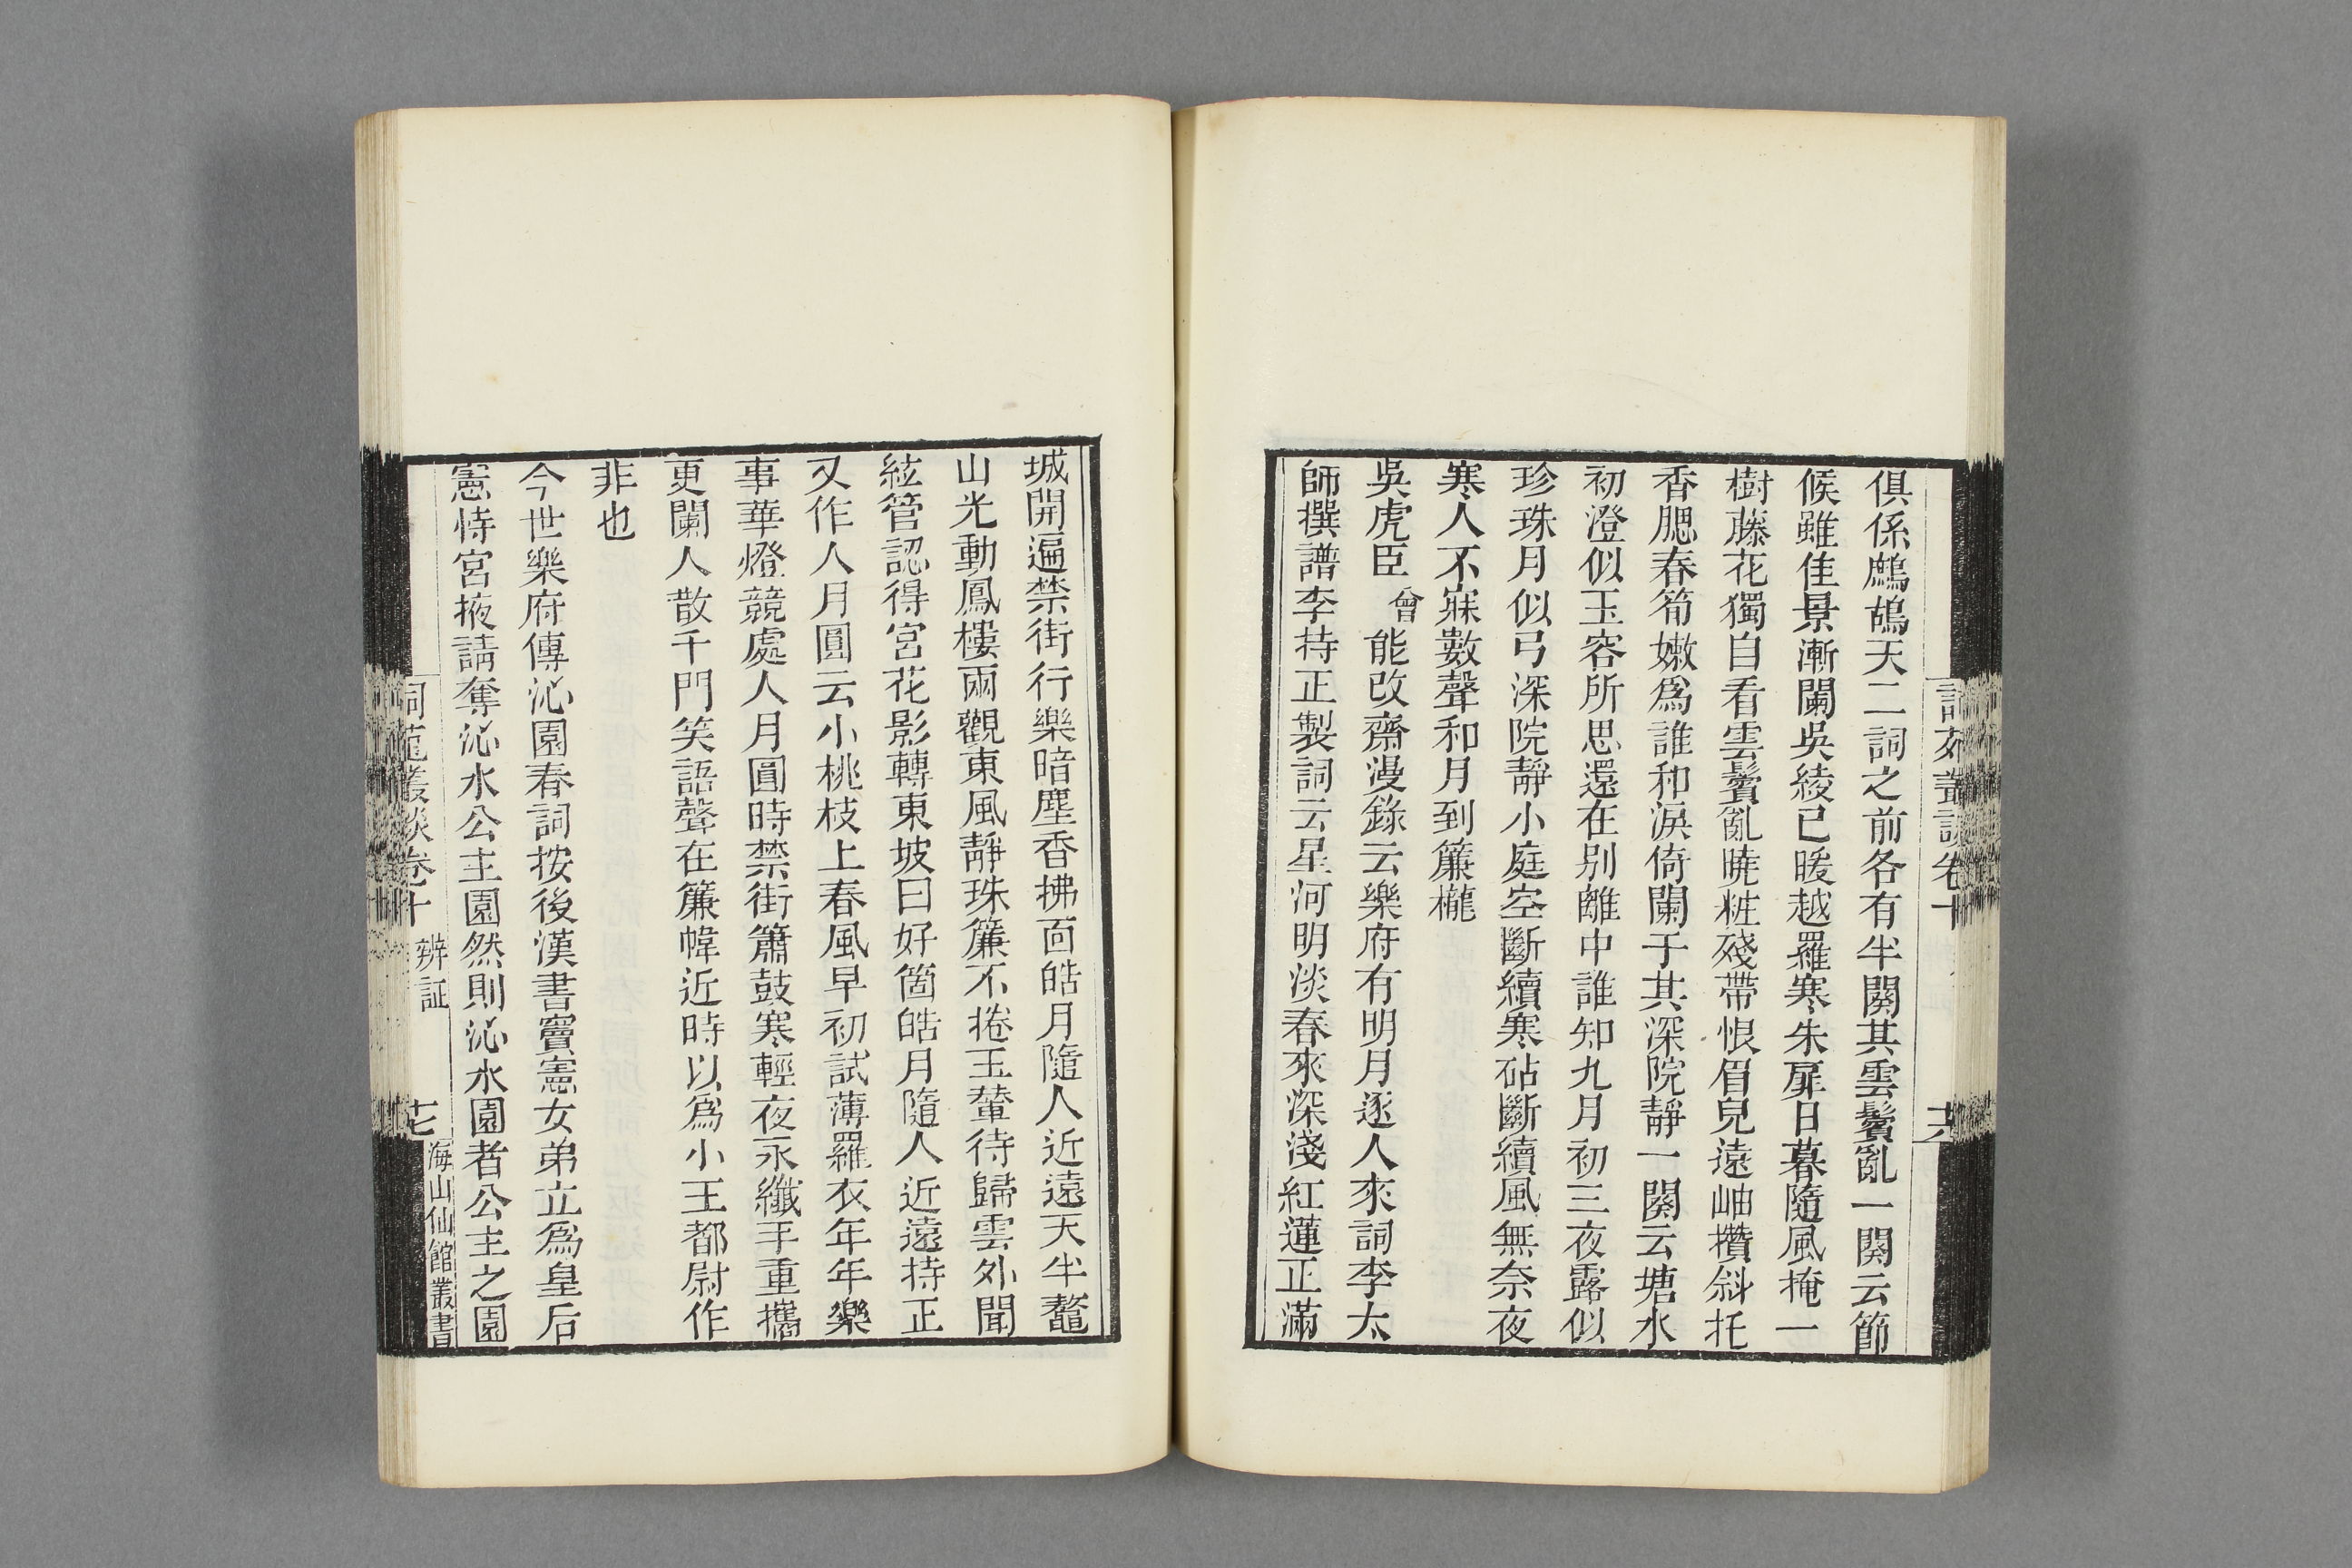 俱係鷓鴣天二詞之前各有半闋其雲鬢亂一闋云節
候雖佳景漸闌吳綾已暖越羅寒朱扉日暮隨風掩一
樹藤花獨自看雲鬢亂曉粧殘帶恨眉兒遠岫攢斜托
香腮春筍嫩爲誰和淚倚闌干其深院靜一闋云塘水
初澄似玉容所思還在别離中誰知九月初三夜露似
珍珠月似弓深院靜小庭空斷續寒砧斷續風無奈夜
寒人不寐數聲和月到簾櫳
吳虎臣曾能改齋漫錄云樂府有明月逐人來詞李太
師撰譜李持正製詞云星河明淡春來深淺紅蓮正滿
城開遍禁街行樂暗塵香拂面皓月隨人近遠天半鼇
山光動鳳樓兩觀東風靜珠簾不捲玉輦待歸雲外聞
絃管認得宮花影轉東坡曰好箇皓月隨人近遠持正
又作人月圓云小桃枝上春風早初試薄羅衣年年樂
事華燈競處人月圓時禁街簫鼓寒輕夜永纖手重攜
更闌人散千門笑語聲在簾幃近時以爲小王都尉作
非也
今世樂府傳沁園春詞按後漢書竇憲女弟立爲皇后
憲恃宮掖請奪沁水公主園然則沁水園者公主之園
詞苑叢談卷十 辨証 十七 海山仙館叢書